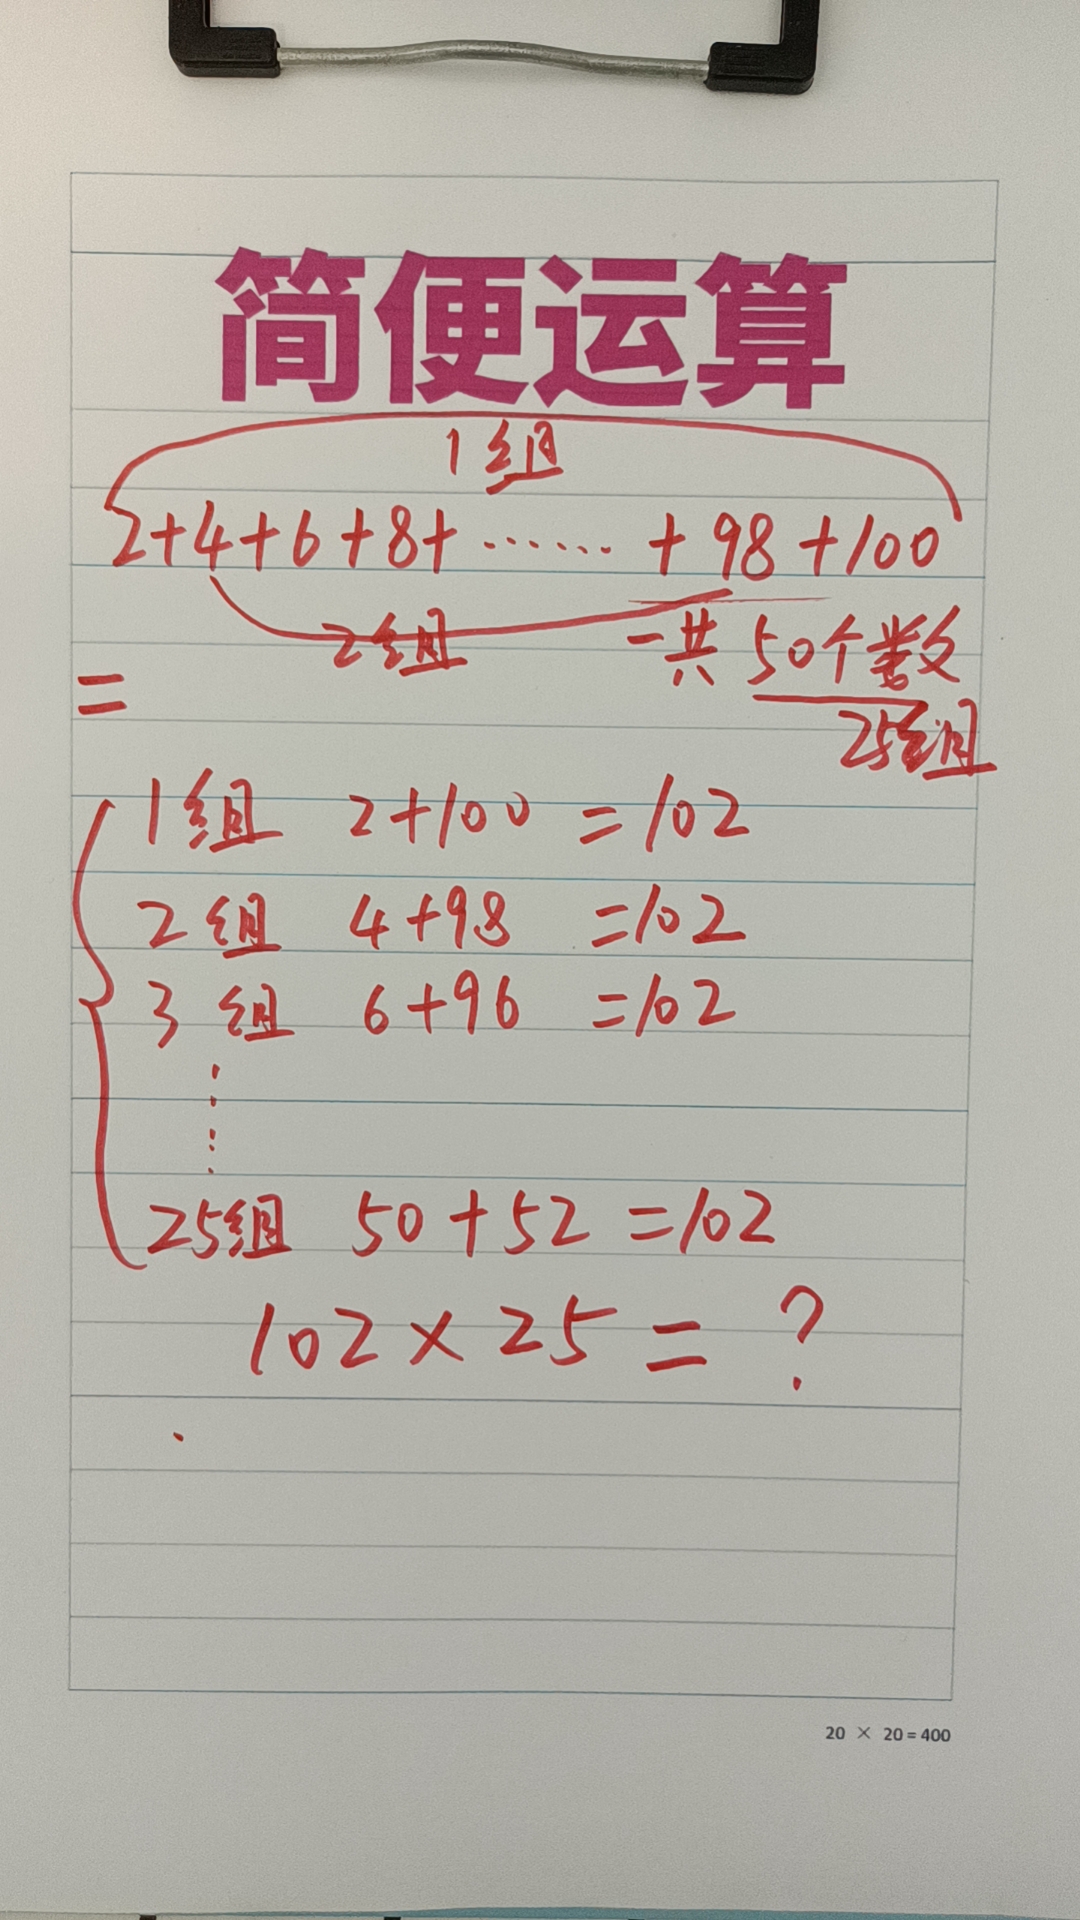 简便运算
1组
2+4+6+8+……+98+100
2组
一共50个数
=
25组
1组 2+100=102
2组 4+98=102
3组 6+96=102
⋮
⋮
25组 50+52=102
102×25=?
20 × 20=400